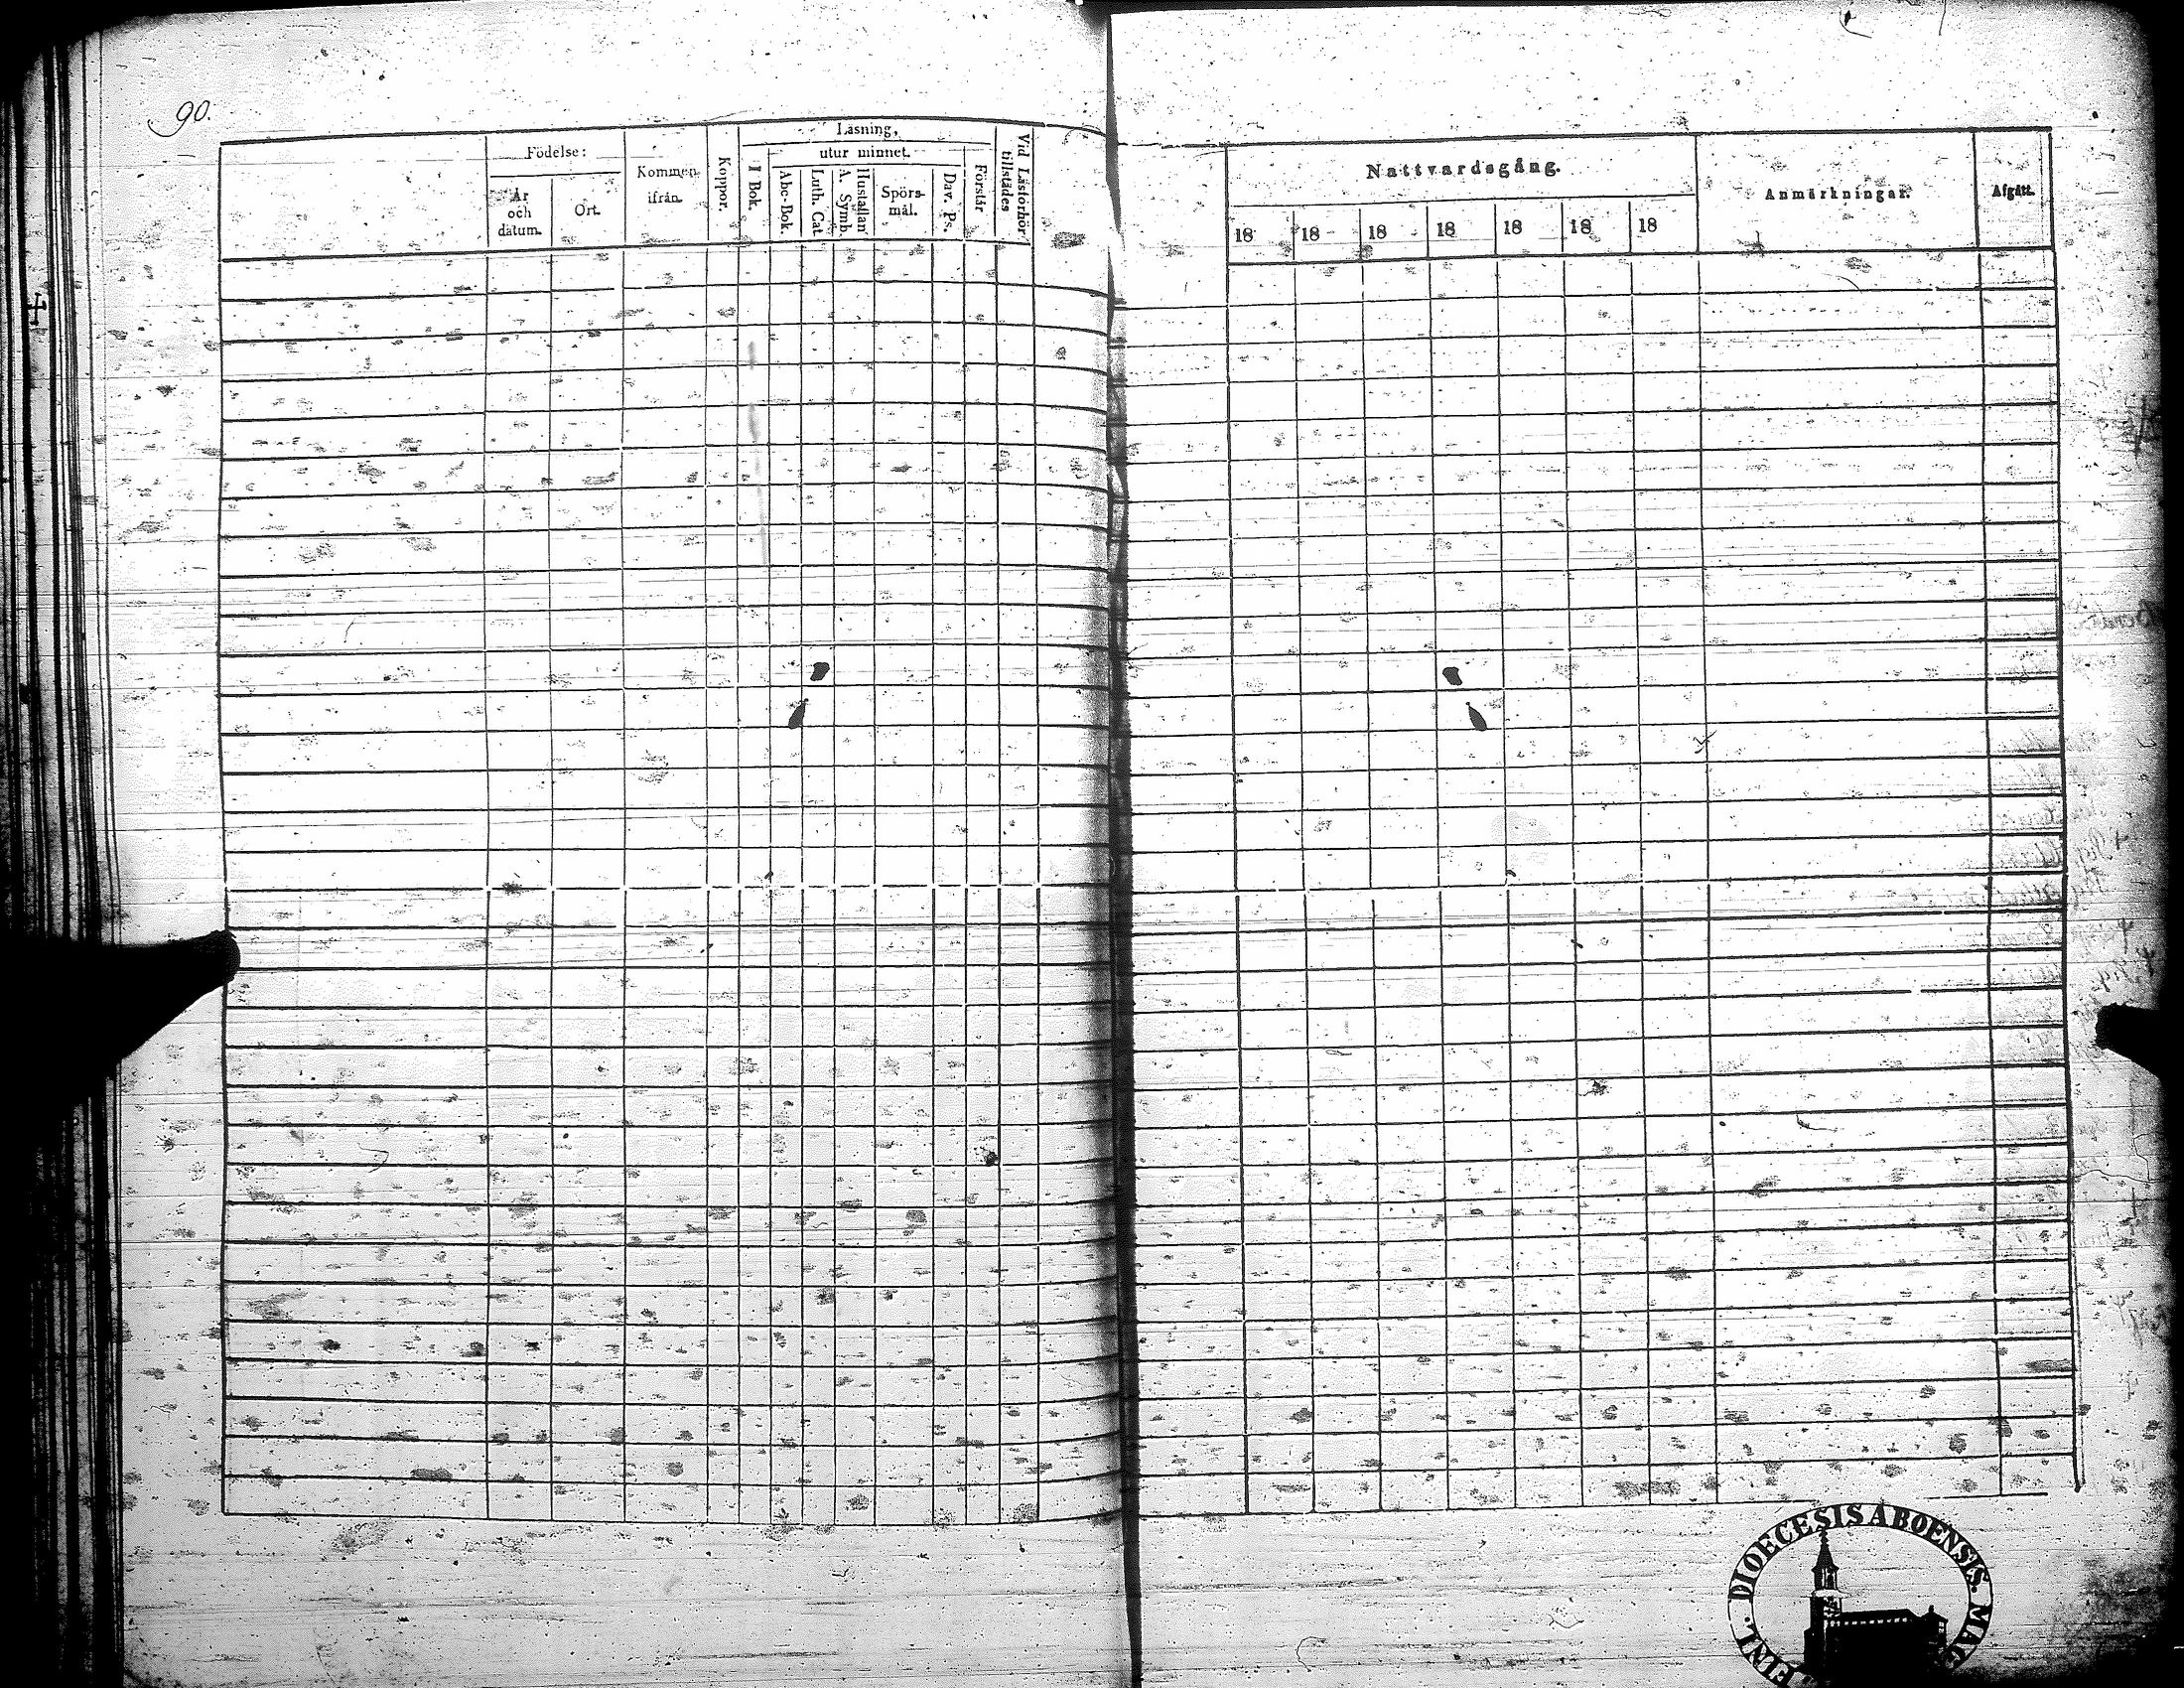 90.
Läsning,
Födelse:
utur minnet.
År
och
datum.
Ort.
Kommen
ifrån.
Koppor.
I Bok.
Abc-Bok.
Luth. Cat.
Hustaflan
A. Symb.
Spörs-
mål.
Dav. Ps.
Förstår
Vid Läsförhör
tillstädes
Nattvardsgång.
Anmärkningar.
Afgått.
18 18 18 18 18 18 18
DIOECESIS ABOENSIS. MAG
FINL.